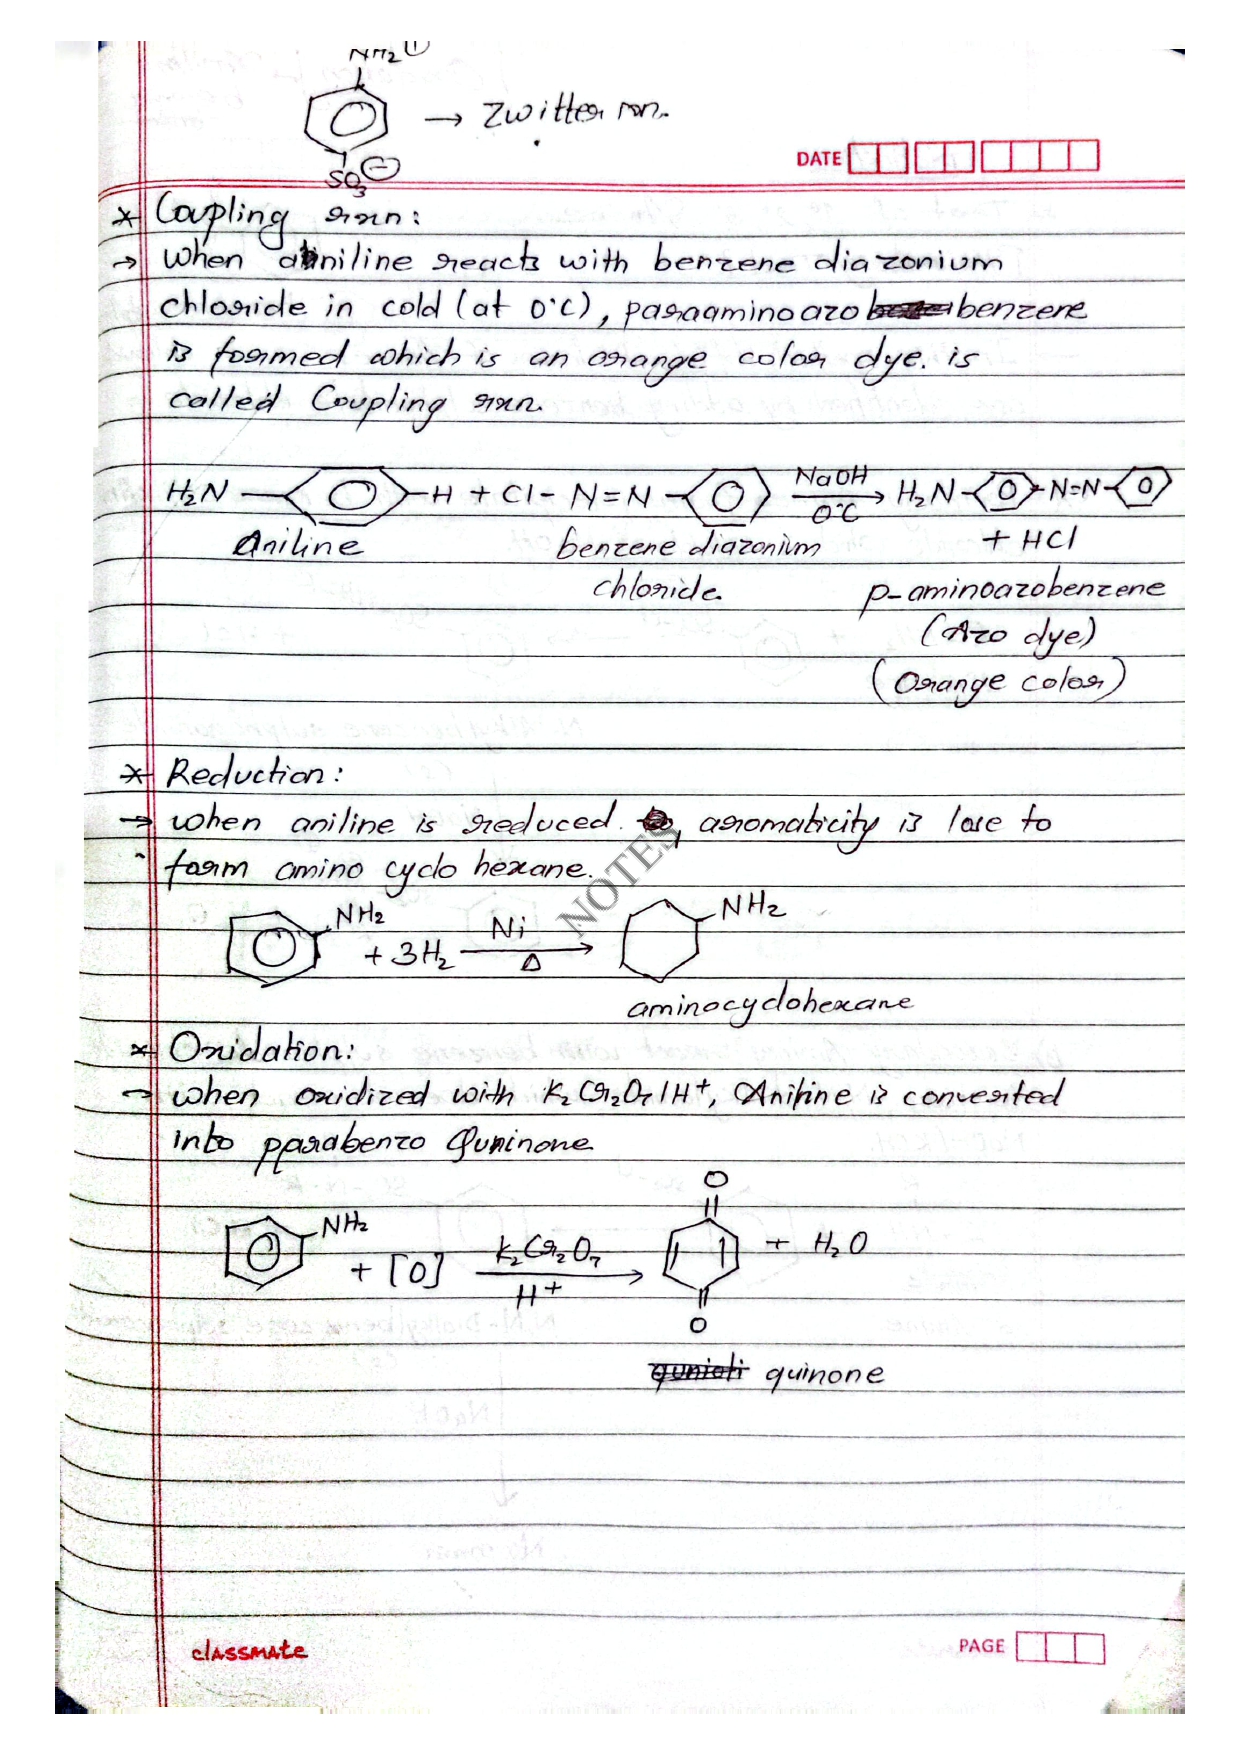 NH2 +
→ Zwitter ion.
SO3 −
DATE
* Coupling rxn:
→ when aniline reacts with benzene diazonium
chloride in cold (at 0°C), paraaminoazo benzene
is formed which is an orange color dye. is
called Coupling rxn.
H2N – –H + Cl– N=N – NaOH → H2N – –N=N–
0°C
Aniline benzene diazonium + HCl
chloride. p-aminoazobenzene
(Azo dye)
(Orange color)
* Reduction:
→ when aniline is reduced. , aromaticity is lose to
form amino cyclo hexane.
NOTES
NH2 + 3H2 Ni → NH2
Δ
aminocyclohexane
* Oxidation:
→ when oxidized with K2Cr2O7/H+, Aniline is converted
into pparabenzo Quninone
O
NH2 + [O] K2Cr2O7 → + H2O
H+
O
quinone
classmate
PAGE